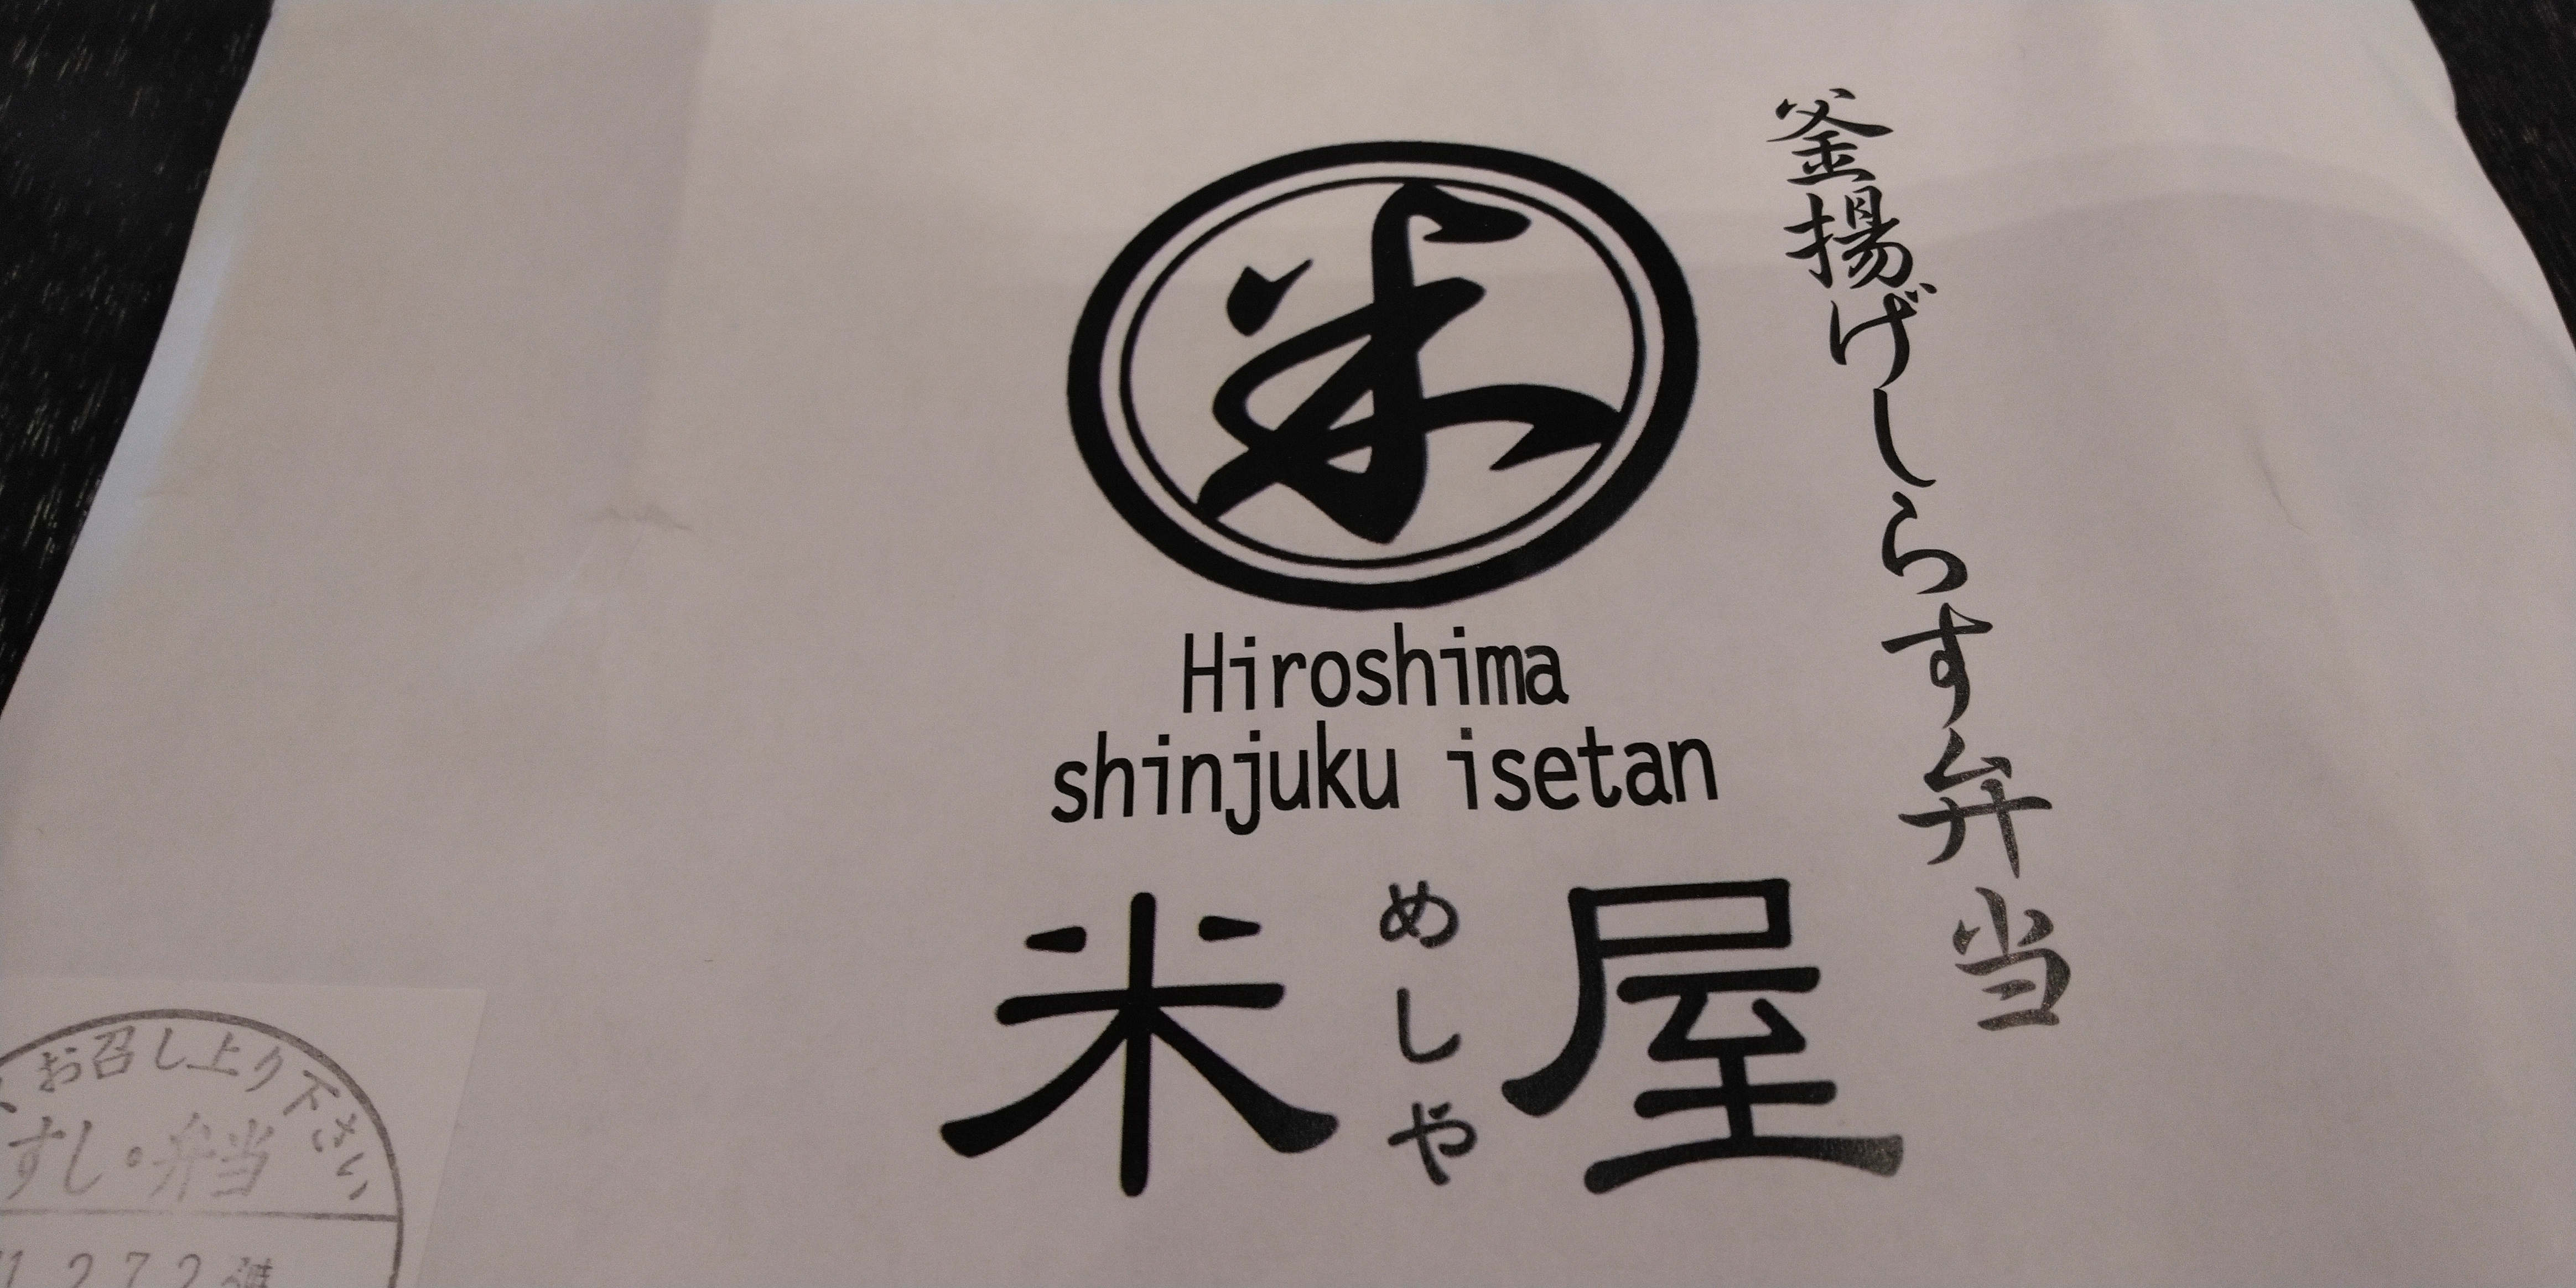 釜揚げしらす弁当
米
Hiroshima
shinjuku isetan
米屋
めしや
お召し上り下さい
すし・弁当
272